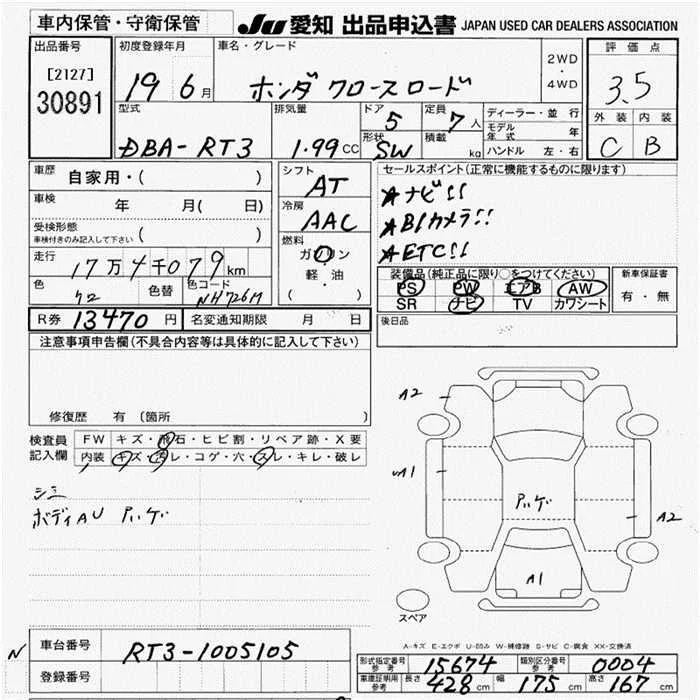 車内保管・守衛保管
JU 愛知 出品申込書 JAPAN USED CAR DEALERS ASSOCIATION
出品番号
[2127]
30891
初度登録年月
19 6月
車名・グレード
ホンダ クロースロード
2WD
・
4WD
評価点
3.5
外装 内装
C B
型式
DBA-RT3
排気量
1.99 CC
ドア
5
形状
SW
定員
7人
積載
kg
ディーラー・並行
モデル年式 年
ハンドル 左・右
車歴 自家用・( )
車検 年 月( 日)
受検形態
車検付きのみ記入して下さい ( )
走行 17万4千079km
色 クロ 色替 色コード NH726M
シフト
AT
冷房
AAC
燃料
ガソリン
軽油
( ・ )
セールスポイント(正常に機能するものに限ります)
★ナビ!!
★Bカメラ!!
★ETC!!
装備品(純正品に限り○をつけてください)
PS PW エアB AW
SR ナビ TV カワシート
新車保証書
有・無
R券 13470円 名変通知期限 月 日
後日品
注意事項申告欄(不具合内容等は具体的に記入して下さい)
修復歴 有(箇所 )
検査員記入欄
FW キズ・飛石・ヒビ割・リペア跡・X要
内装 キズ・汚レ・コゲ・穴・スレ・キレ・破レ
シミ
ボディAU ハゲ
A2
A1
ハゲ
A2
A1
スペア
A-キズ E-エクボ U-凹み W-補修跡 S-サビ C-腐食 XX-交換済
N
車台番号 RT3-1005105
登録番号
形式指定番号 参考 15674 類別区分番号 参考 0004
車庫証明用 参考 長さ 428cm 幅 175cm 高さ 167cm